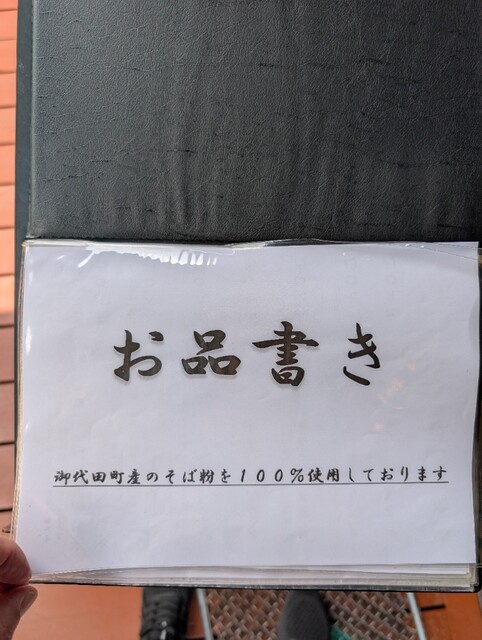 お品書き
御代田町産のそば粉を１００％使用しております